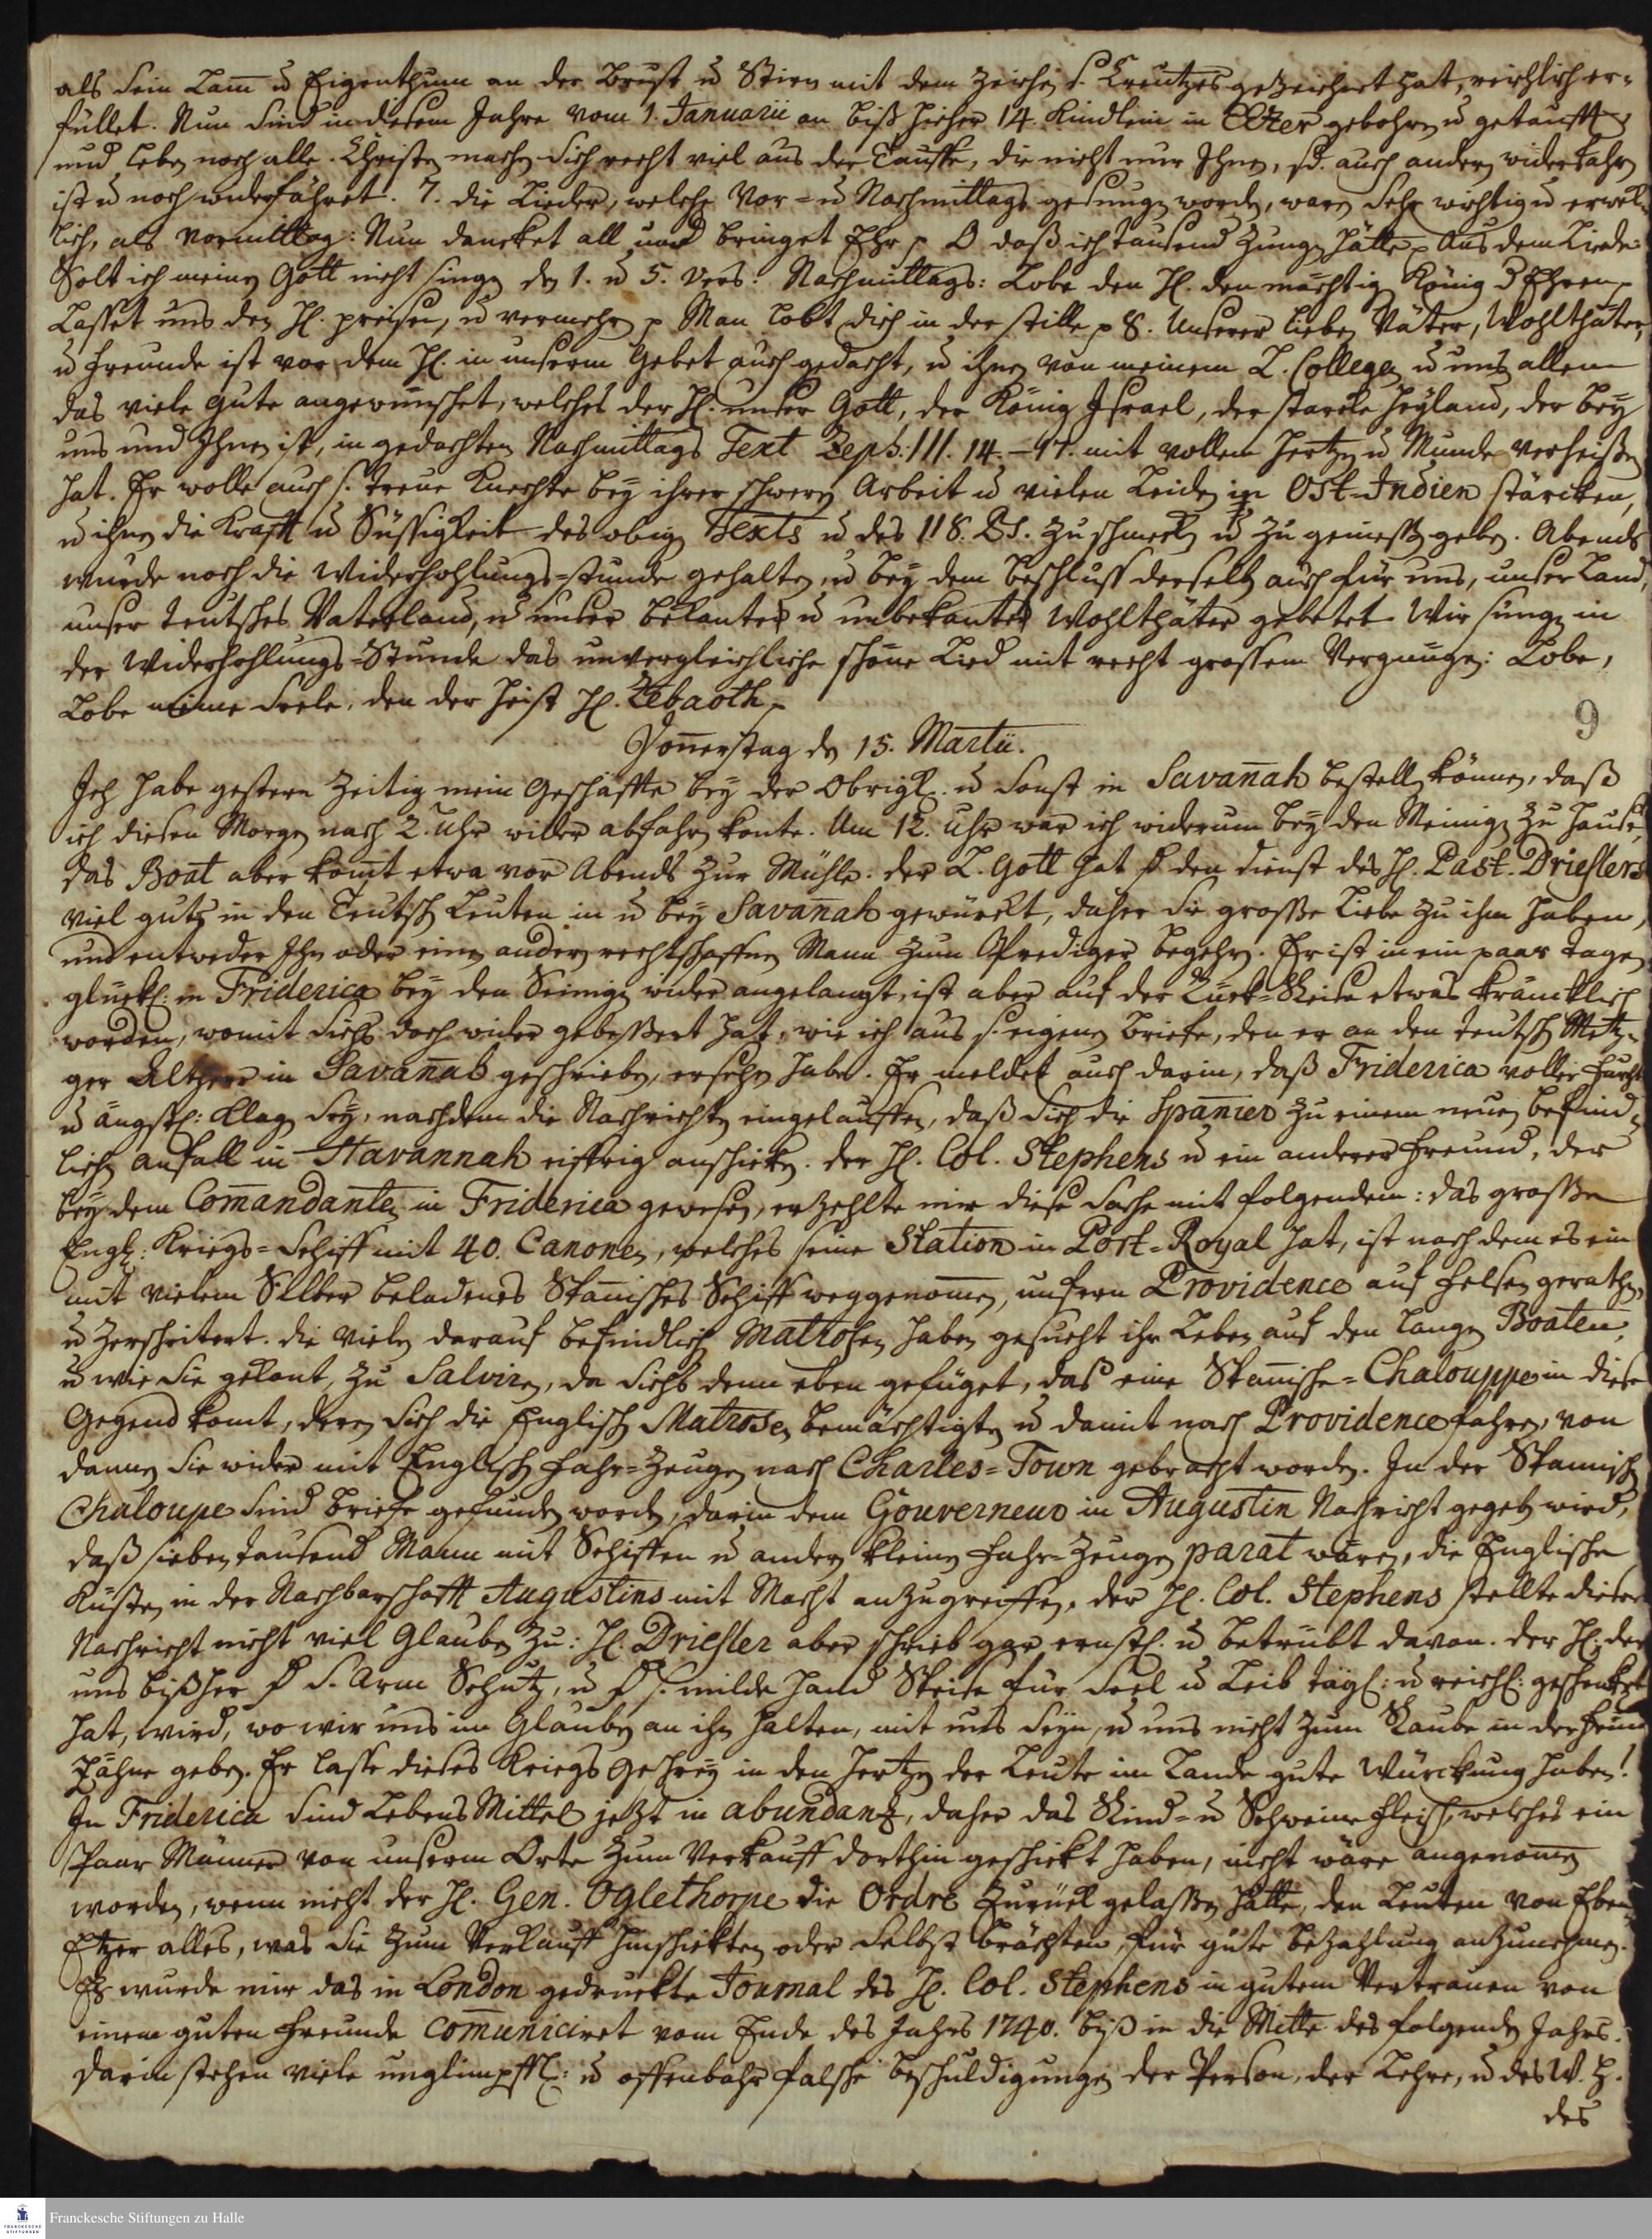 als sein Lam̄ u. Eigenthum an der Brust u. Stirn mit dem Zeichen s. Creutzes gezeichnet hat, reichlich er-
füllet. Nun sind in diesem Jahre vom 1. Januarii an biß hieher 14. Kindlein in EbEzer gebohren u. getaufft
und leben noch alle. Christen machen sich recht viel aus der Tauffe, die nicht nur Ihnen, sd. auch andern widerfahren
ist u. noch widerfähret. 7. die Lieder, welche Vor- u. Nachmittags gesungen worden, waren sehr wichtig u. erweck-
lich, als Vormittag: Nun dancket all und bringet Ehr p O daß ich tausend Zungen hätte p Aus dem Liede
Solt ich meinen Gott nicht singen den 1. u. 5. Vers. Nachmittags: Lobe den H. den mächtigen König d Ehren p
Lasset uns den H. preisen, u. vermehren p Man lobt dich in der stille p 8. Unserer lieben Väter, Wohlthäter,
u. Freunde ist vor dem H. in unserm Gebet auch gedacht, u. ihnen von meinem L. Collegen u. uns allen
das viele Gute angewünschet, welches der H. unser Gott, der König Israel, der starcke Heyland, der bey
uns und Ihnen ist, in gedachten Nachmittags Text Zeph. III. 14.–17. mit vollem Hertzen u. Munde verheißen
hat. Er wolle auch s. treue Knechte bey ihrer schweren Arbeit u. vielen Leiden in Ost-Indien stärcken,
u. ihnen die Krafft u. Süssigkeit des obigen Texts u. des 118. Ps. zu schmecken u. zu geniessen geben. Abends
wurde noch die Widerhohlungs-stunde gehalten, u. bey dem Beschluss derselben auch für uns, unser Land,
unser teutsches Vaterland, u. unser bekante u. unbekante Wohlthäter gebetet. Wir sungen in
der Widerhohlungs-Stunde das unvergleichliche schöne Lied mit recht grossem Vergnügen: Lobe,
Lobe meine Seele, den der heist H. Zebaoth p
9
Doñerstag den 15. Martii.
Ich habe gestern Zeitig mein Geschäffte bey der Obrigk. u. sonst in Savañah bestellen können, daß
ich diesen Morgen nach 2. Uhr wider abfahren konte. Um 12. Uhr war ich widerum bey den Meinigen zu Hause,
das Boat aber kom̄t etwa vor Abends zur Mühle. der L. Gott hat d. den Dienst des H. Past. Drieslers
viel gutes in den Teutschen Leuten in u. bey Savañah gewürckt, daher sie grosse Liebe zu ihm haben,
und entweder Ihn oder einen andern rechtschaffnen Mann zum Prediger begehren. Er ist in ein paar tagen
glückl. in Friderica bey den Seinigen wider angelangt, ist aber auf der Rück-Reise etwas kräncklich
worden, womit sichs doch wider gebessert hat, wie ich aus s. eigenen Briefe, den er an den teutschen Metz-
ger Altherr in Savañah geschrieben, ersehen habe. Er meldet auch darin, daß Friderica voller Furcht
u. ängstl: Klagen sey, nachdem die Nachrichten eingelauffen, daß sich die Spanier zu einem neuen befind-
lichen anfall in Havannah eiffrig anschicken. der H. Col. Stephens u. ein anderer Freund, der
bey dem Com̄andanten in Friderica gewesen, erzehlte mir diese Sache mit folgendem: das grosse
Engl: Kriegs-Schiff mit 40. Canonen, welches seine Station in Port-Royal hat, ist nach dem es ein
mit vielem Silber beladenes Spanisches Schiff weggenom̄en, unfern Providence auf Felsen gerathen,
u. zerscheitert. die vielen darauf befindlichen Matrosen haben gesucht ihr Leben auf den langen Boaten,
u. wie sie gekont, zu Salviren, da sichs denn eben gefüget, das eine Spanische-Chalouppe in diese
Gegend komt, deren sich die Englischen Matrosen bemächtigten u. damit nach Providence fahren, von
dannen sie wider mit Englischen Fahr-Zeugen nach Charles-Town gebracht worden. In der Spanischen
Chaloupe sind Briefe gefunden worden, darin dem Gouverneur in Augustin Nachricht gegeben wird,
daß sieben tausend Mann mit Schiffen u. andern kleinen Fahr-Zeugen parat wären, die Englische
Küsten in der Nachbarschafft Augustins mit Macht anzugreiffen. der H. Col. Stephens stellte dieser
Nachricht nicht viel Glauben zu: H. Driesler aber schrieb gar ernstl. u. betrübt davon. der H. der
uns bißher d. s. Arm Schutz, u. d. s. milde Hand Speise für Seel u. Leib tägl: u. reichl: geschencket
hat, wird, wo wir uns im Glauben an ihn halten, mit uns seyn, u. uns nicht zum Raube in der Feinde
Zähne geben. Er lasse dieses Kriegs Geschrey in den Hertzen der Leute im Lande gute Würckung haben!
In Friderica sind Lebens Mittel jetzt in abundantz, daher das Rind- u. Schweine Fleisch, welches ein
Paar Männer von unserm Orte zum Verkauff dorthin geschickt haben, nicht wäre angenom̄en
worden, wenn nicht der H. Gen. Oglethorpe die Ordre zurück gelassen hätte, den Leuten von Eben-
Ezer alles, was sie zum Verkauff hinschickten oder selbst brächten, für gute Bezahlung anzunehmen.
Es wurde mir das in London gedruckte Journal des H. Col. Stephens in gutem Vertrauen von
einem guten Freunde com̄uniciret vom Ende des Jahrs 1740. biß in die Mitte des folgenden Jahrs.
darin stehen viele unglimpffl: u. offenbahr falsche Beschuldigungen der Person, der Lehre, u. des W. H.
des
Franckesche Stiftungen zu Halle